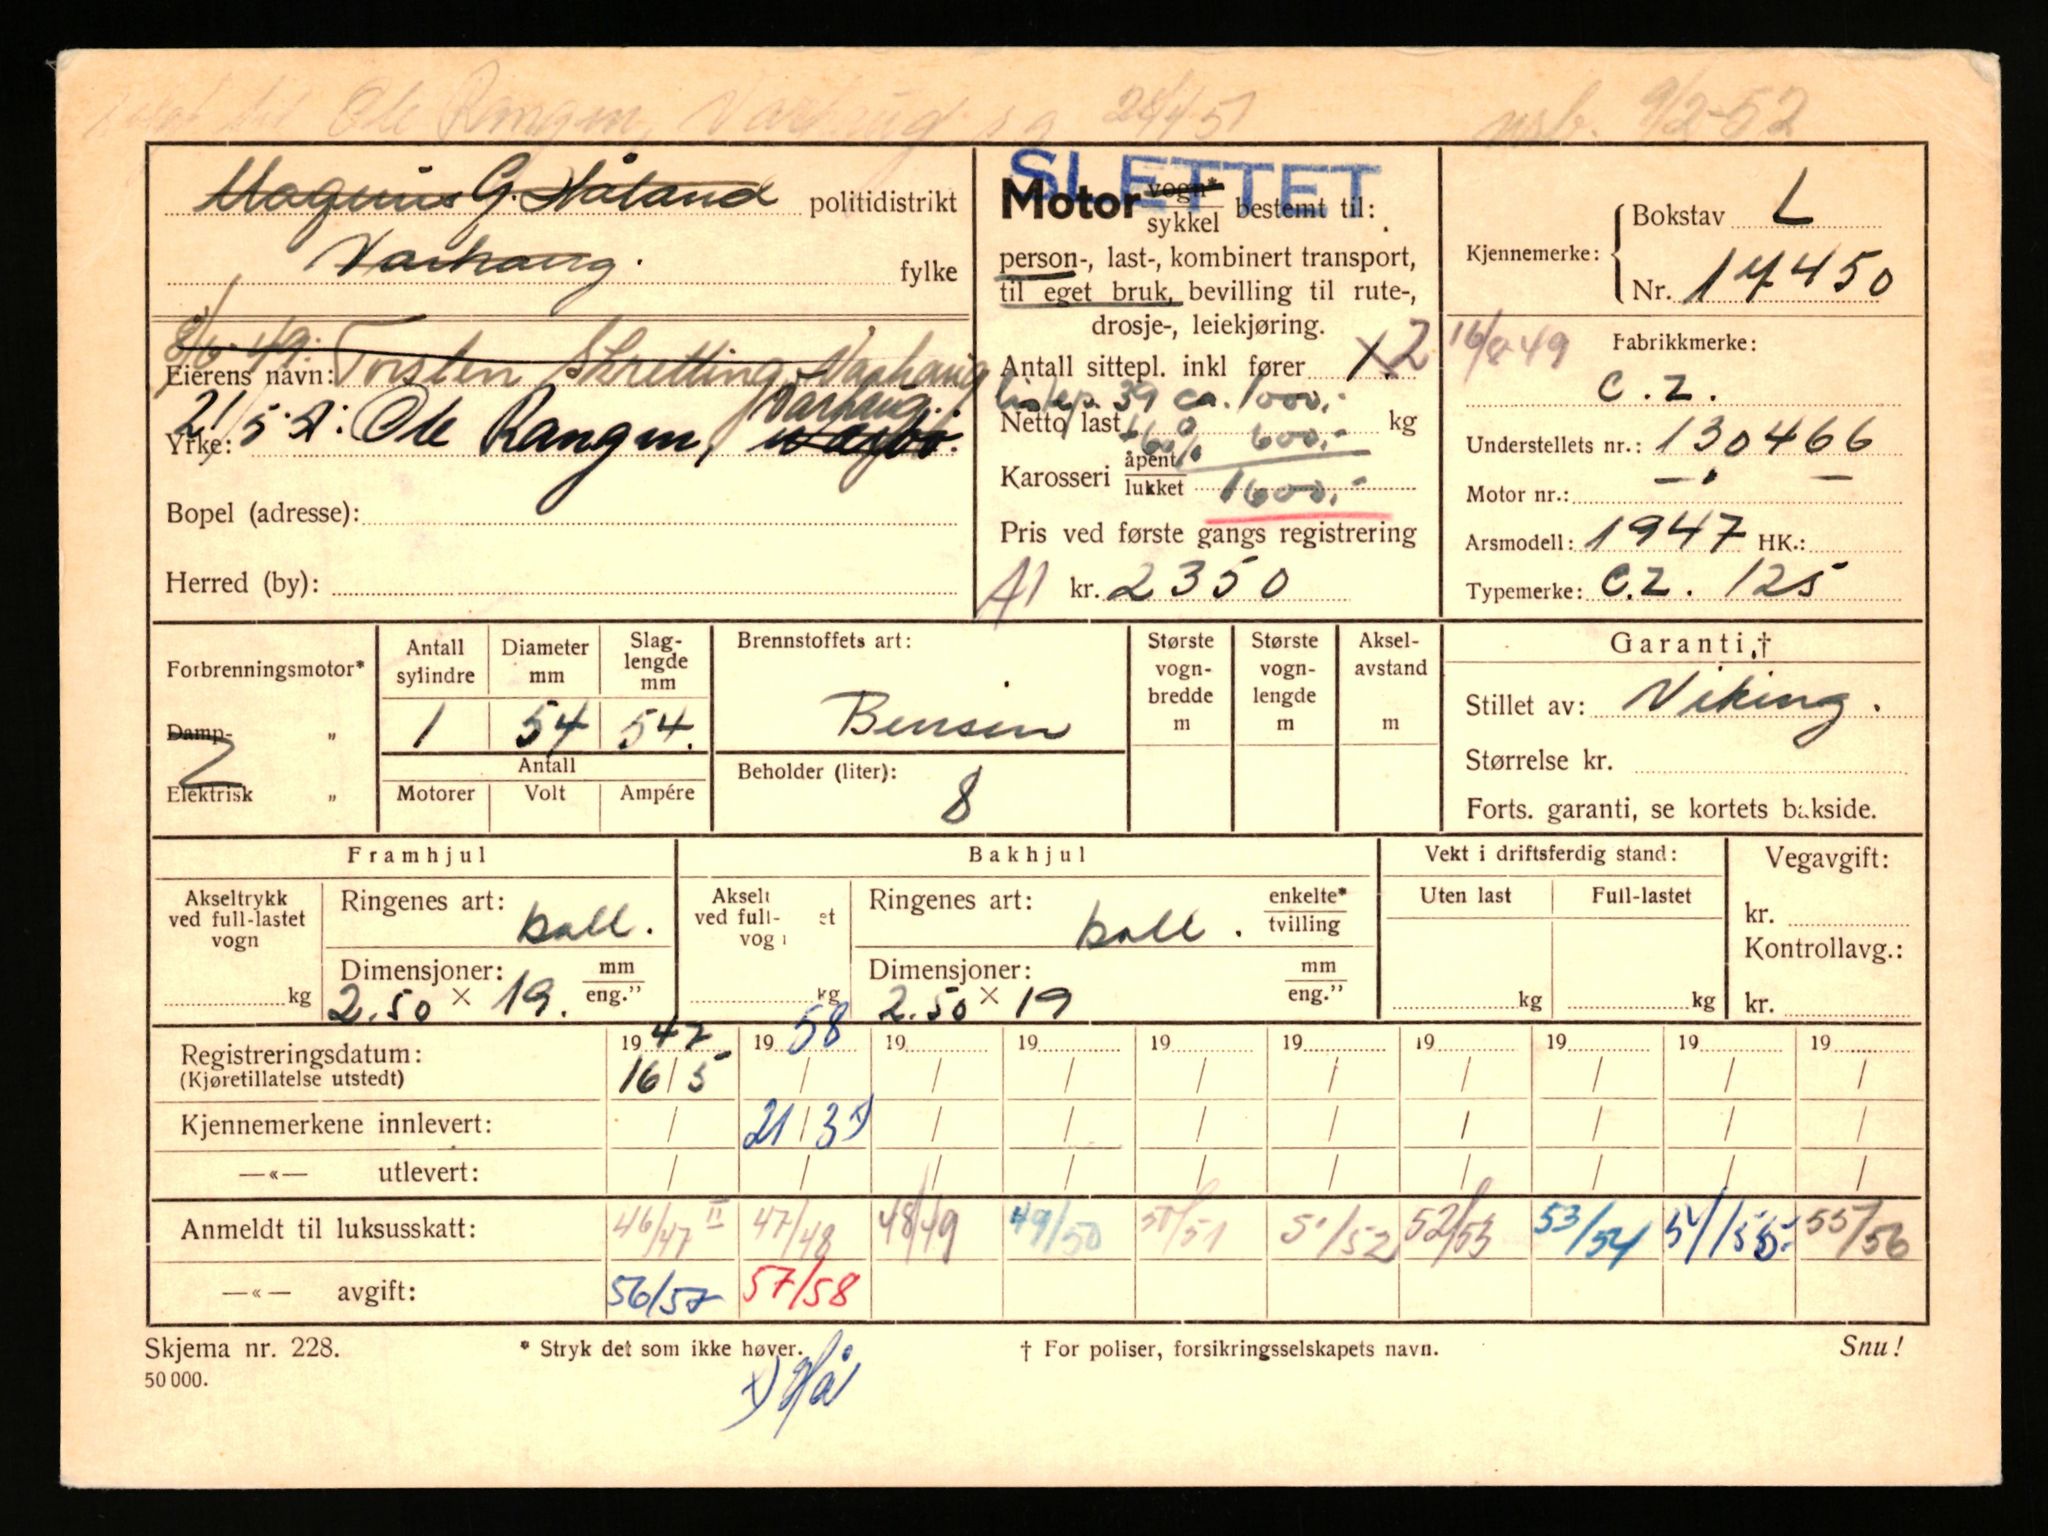 til Ole Rangen, Varhaug 28/4 51 9/2-52
SLETTET
Magnus G. Håland politidistrikt
Varhaug. fylke
8/6-49: Torsten Skretting, Varhaug
Eierens navn:
21/5-51: Ole Rangen, Varhaug.
Yrke:
Bopel (adresse):
Herred (by):
Motor vogn*
sykkel bestemt til:
person-, last-, kombinert transport,
til eget bruk, bevilling til rute-,
drosje-, leiekjøring.
Antall sittepl. inkl fører 1. 2
listep. 39 ca. 1000,-
Netto last kg
+60% 600,-
Karosseri åpent
lukket 1600,-
Pris ved første gangs registrering
A1 kr. 2350
Kjennemerke: Bokstav L
Nr. 14450
16/8-49 Fabrikkmerke:
C.Z.
Understellets nr.: 130466
Motor nr.: — " —
Årsmodell: 1947 HK.:
Typemerke: C.Z. 125
Forbrenningsmotor*
Damp- „
2
Elektrisk „
Antall sylindre Diameter mm Slag-lengde mm
1 54 54.
Antall
Motorer Volt Ampére
Brennstoffets art:
Bensin
Beholder (liter):
8
Største vogn-bredde m
Største vogn-lengde m
Aksel-avstand m
Garanti.†
Stillet av: Viking.
Størrelse kr.
Forts. garanti, se kortets bakside.
Framhjul
Akseltrykk ved full-lastet vogn
kg
Ringenes art: ball.
Dimensjoner: mm
eng.”
2.50 × 19.
Bakhjul
Akselt ved full- et vog
kg
Ringenes art: ball. enkelte*
tvilling
Dimensjoner: mm
eng.”
2.50 × 19
Vekt i driftsferdig stand:
Uten last Full-lastet
kg kg
Vegavgift:
kr.
Kontrollavg.:
kr.
Registreringsdatum: 1947 1958 19 19 19 19 19 19 19 19
(Kjøretillatelse utstedt) 16/5 / / / / / / / / /
Kjennemerkene innlevert: / 21/3 x) / / / / / / / /
—«— utlevert: / / / / / / / / / /
Anmeldt til luksusskatt: 46/47 II 47/48 48/49 49/50 50/51 51/52 52/53 53/54 54/55 55/56
—«— avgift: 56/57 57/58
Skjema nr. 228. * Stryk det som ikke høver. † For poliser, forsikringsselskapets navn. Snu!
50 000.
x) H/å